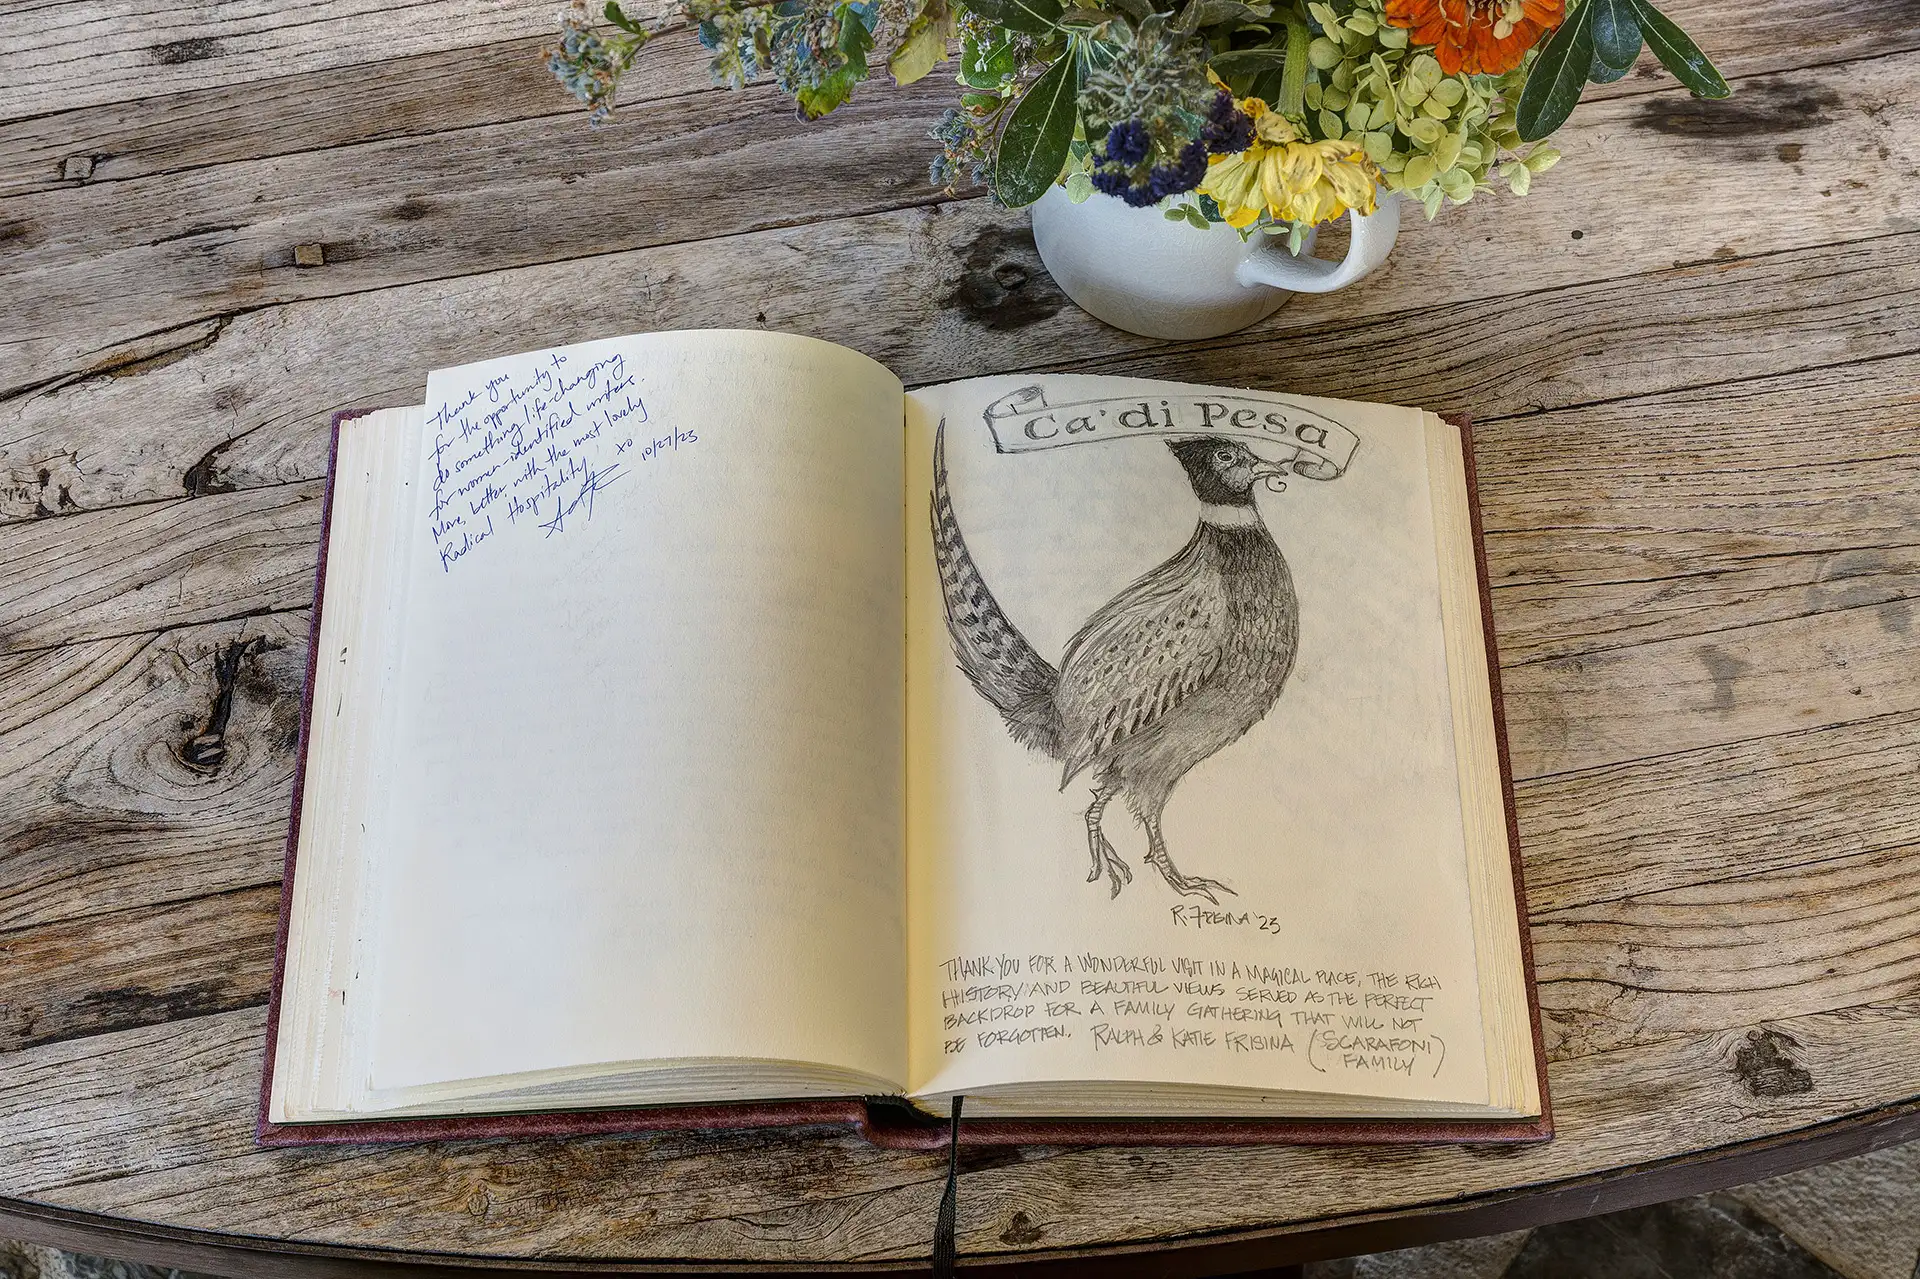 Thank you
for the opportunity to
do something life-changing
for women-identified writers.
More, better with the most lovely
Radical Hospitality! xo
10/27/23
Ca'di Pesa
R. FRISINA '23
THANK YOU FOR A WONDERFUL VISIT IN A MAGICAL PLACE, THE RICH
HISTORY AND BEAUTIFUL VIEWS SERVED AS THE PERFECT
BACKDROP FOR A FAMILY GATHERING THAT WILL NOT
BE FORGOTTEN. RALPH & KATIE FRISINA (SCARAFONI)
FAMILY